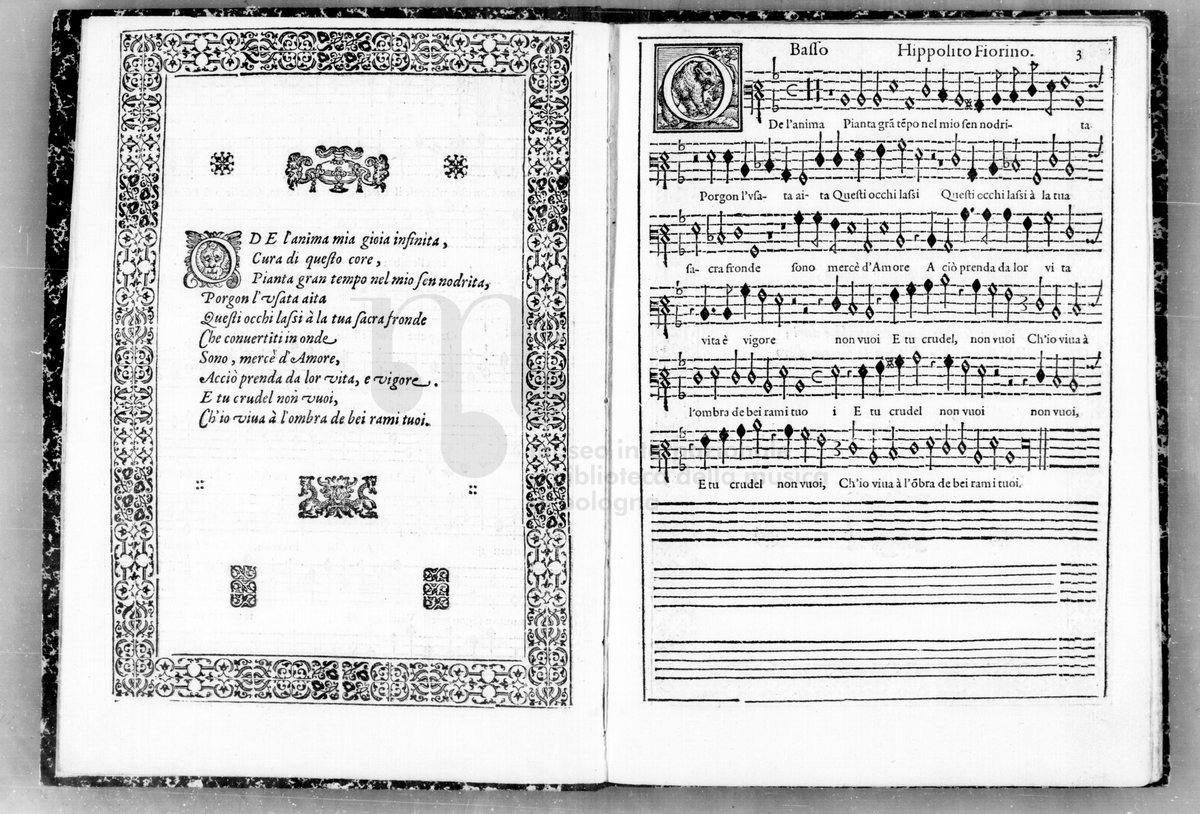 O DE l'anima mia gioia infinita,
Cura di questo core,
Pianta gran tempo nel mio sen nodrita,
Porgon l'vsata aita
Questi occhi lassi à la tua sacra fronde
Che conuertiti in onde
Sono, mercè d'Amore,
Acciò prenda da lor vita, e vigore.
E tu crudel non vuoi,
Ch'io viua à l'ombra de bei rami tuoi.
Basso Hippolito Fiorino. 3
O De l'anima Pianta grã tẽpo nel mio sen nodri- ta
Porgon l'vsa- ta ai- ta Questi occhi lassi Questi occhi lassi à la tua
sa- cra fronde sono mercè d'Amore A ciò prenda da lor vi ta
vita è vigore non vuoi E tu crudel, non vuoi Ch'io viua à
l'ombra de bei rami tuo i E tu crudel non vuoi non vuoi,
E tu crudel non vuoi, Ch'io viua à l'õbra de bei rami tuoi.
museo internazionale
biblioteca della musica
bologna